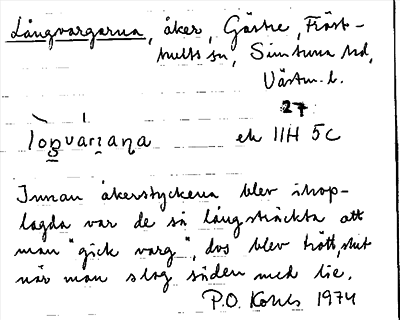 Långvargarna, åker, Gästre, Fröst-
hults sn, Simtuna hd,
Västm. l.
27
ek 11H 5c
Innan åkerstyckena blev ihop-
lagda var de så långsträckta att
man "gick varg", dvs blev trött, slut
när man slog säden med lie.
P.O. Kohls 1974